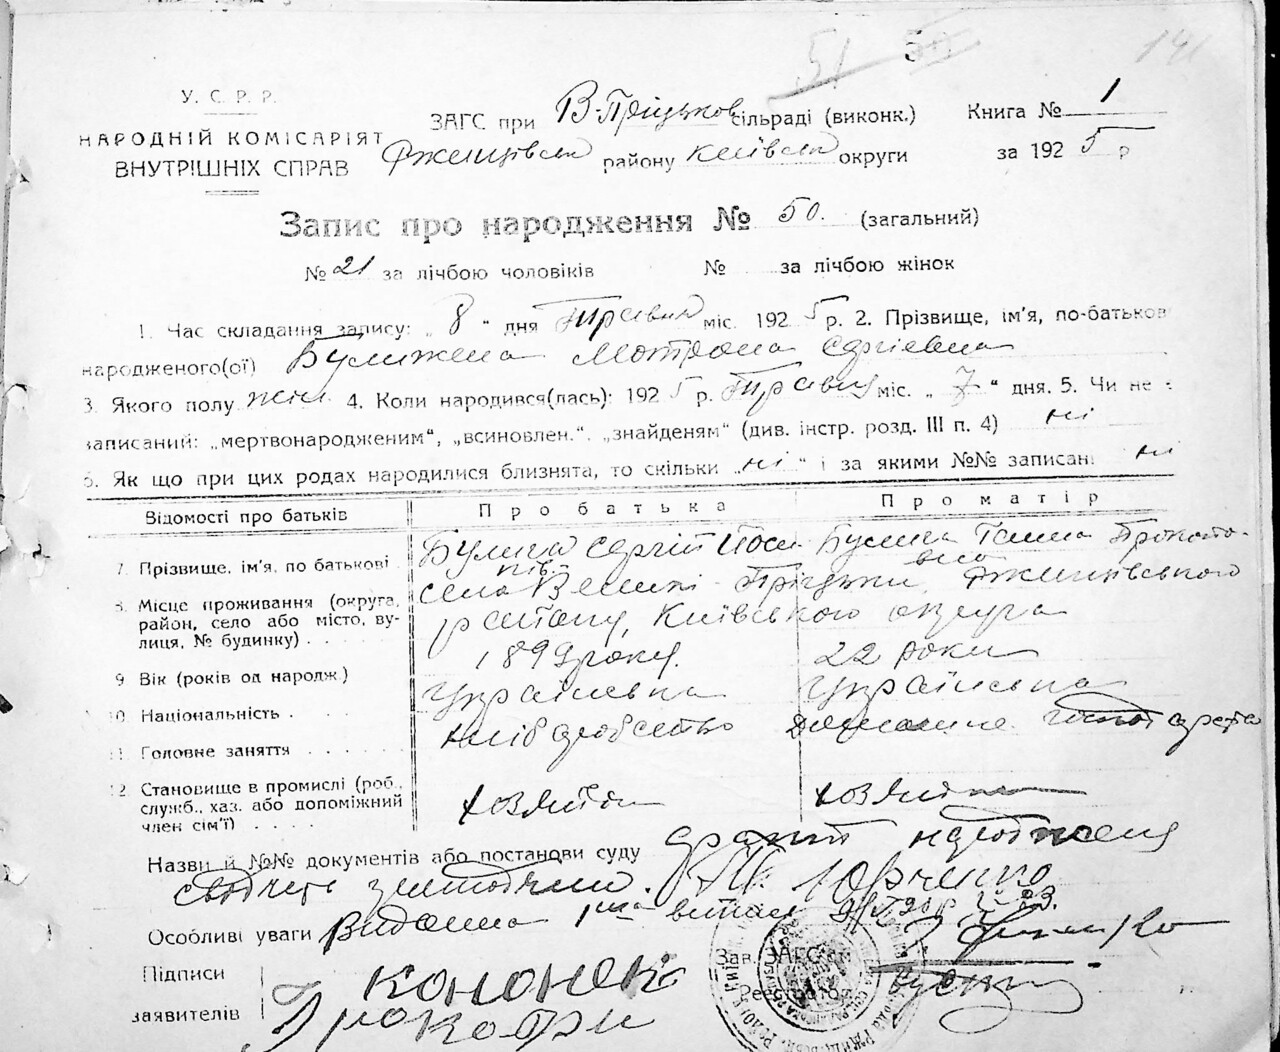 51 50 141
У. С. Р. Р.
НАРОДНІЙ КОМІСАРІЯТ
ВНУТРІШНІХ СПРАВ
ЗАГС при В-Пріцьков сільраді (виконк.) Книга № 1
Ржищівськ району Київськ округи за 1925 р
Запис про народження № 50. (загальний)
№ 21 за лічбою чоловіків № за лічбою жінок
1. Час складання запису: „ 8 “ дня Травня міс. 1925 р. 2. Прізвище, ім'я, по-батьков
народженого(ої) Мотрона Сергіевна
3. Якого полу жін 4. Коли народився(лась): 1925 р. Травня міс. „ 7 “ дня. 5. Чи не є
записаний: „мертвонародженим“, „всиновлен.“, „знайденям“ (див. інстр. розд. III п. 4) ні
6. Як що при цих родах народилися близнята, то скільки „ ні “ і за якими №№ записані ні
Відомості про батьків Про батька Про матір
7. Прізвище, ім'я, по батькові Булига Сергій Йоси пів. Булига Ганна Прокопо- вна
8. Місце проживання (округа, район, село або місто, ву- лиця, № будинку) село Великі Пріцьки Ржищівського
району, Київського округа
9 Вік (років од народж.) 1899 року. 22 роки
10 Національність Українська Українська
11. Головне заняття хліборобство домашне господарство
12 Становище в промислі (роб., служб., хаз. або допоміжний член сім'ї) хозяйін хозяйка
Назви й №№ документів або постанови суду народження
Юрченко
Особливі уваги Видана витяг
Підписи Кононек Зав. ЗАГС'ом
заявителів Прокофи Реєстратор